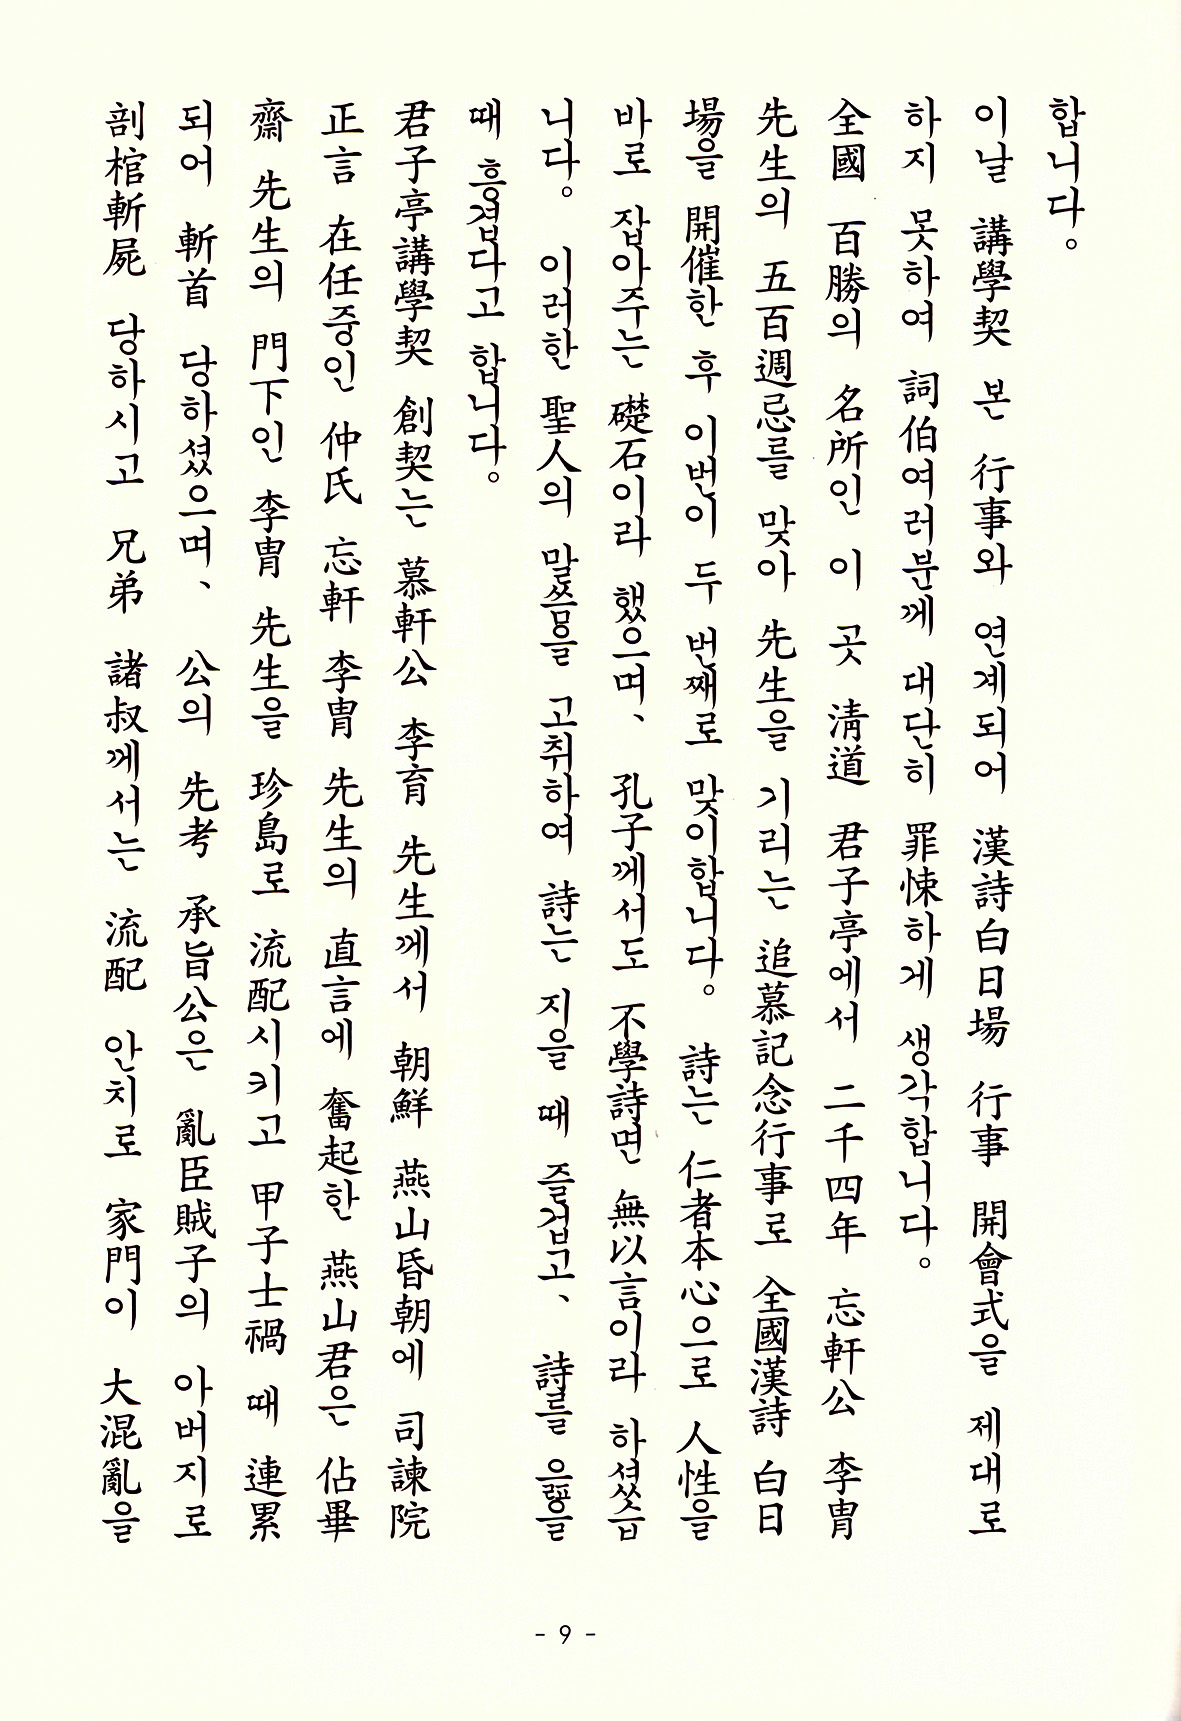 합니다。
이날 講學契 본 行事와 연계되어 漢詩白日場 行事 開會式을 제대로
하지 못하여 詞伯여러분께 대단히 罪悚하게 생각합니다。
全國 百勝의 名所인 이 곳 淸道 君子亭에서 二千四年 忘軒公 李冑
先生의 五百週忌를 맞아 先生을 기리는 追慕記念行事로 全國漢詩 白日
場을 開催한 후 이번이 두 번째로 맞이합니다。 詩는 仁者本心으로 人性을
바로 잡아주는 礎石이라 했으며、 孔子께서도 不學詩면 無以言이라 하셨습
니다。 이러한 聖人의 말씀을 고취하여 詩는 지을 때 즐겁고、 詩를 읊을
때 흥겹다고 합니다。
君子亭講學契 創契는 慕軒公 李育 先生께서 朝鮮 燕山昏朝에 司諫院
正言 在任중인 仲氏 忘軒 李冑 先生의 直言에 奮起한 燕山君은 佔畢
齋 先生의 門下인 李冑 先生을 珍島로 流配시키고 甲子士禍 때 連累
되어 斬首 당하셨으며、 公의 先考 承旨公은 亂臣賊子의 아버지로
剖棺斬屍 당하시고 兄弟 諸叔께서는 流配 안치로 家門이 大混亂을
- 9 -